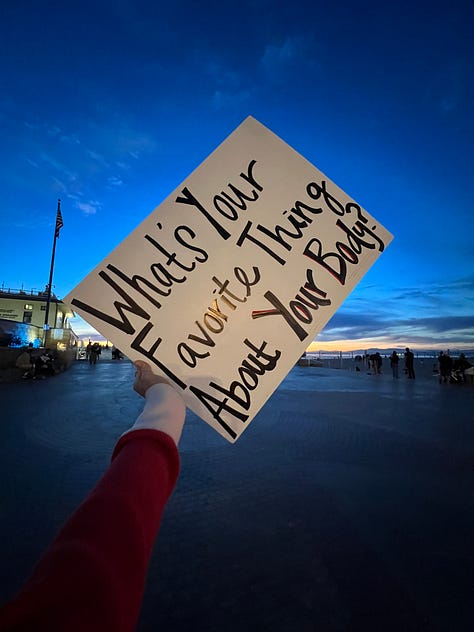 What's Your
Favorite Thing
About Your Body?